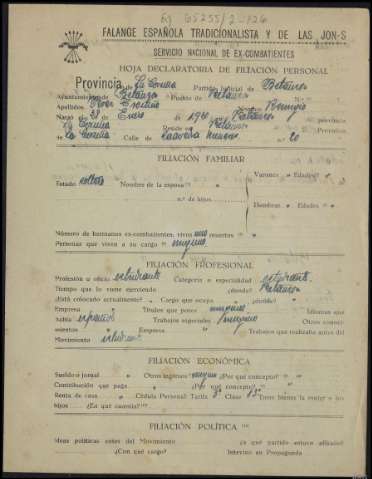 65255/2-026
FALANGE ESPAÑOLA TRADICIONALISTA Y DE LAS JON-S
SERVICIO NACIONAL DE EX-COMBATIENTES
HOJA DECLARATORIA DE FILIACIÓN PERSONAL
Provincia de La Coruña Partido judicial de Betanzos
Ayuntamiento de Betanzos Pueblo de Betanzos
Apellidos Nombre
Nació el de Enero de 19 provincia
La Coruña Reside en Betanzos provincia
de La Coruña Calle de Saavedra Meneses n.º 20
FILIACIÓN FAMILIAR
Estado soltero Nombre de la esposa Varones Edades
n.º de hijos
Hembras Edades
Número de hermanos ex-combatientes, vivos uno muertos
Personas que viven a su cargo ninguno
FILIACIÓN PROFESIONAL
Profesión u oficio estudiante Categoría o especialidad estudiante
Tiempo que lo viene ejerciendo ¿dónde? Betanzos
¿Está colocado actualmente? Cargo que ocupa ¿sueldo?
Empresa Títulos que posee ninguno Idiomas que
habla español Trabajos especiales ninguno Otros conoci-
mientos Empresa Trabajos que realizaba antes del
Movimiento estudiante
FILIACIÓN ECONÓMICA
Sueldo o jornal Otros ingresos ninguno ¿Por qué concepto?
Contribución que paga ¿Por qué concepto?
Renta de casa Cédula Personal: Tarifa Clase Tiene bienes la mujer o los
hijos ¿En qué cuantía?
FILIACIÓN POLÍTICA
Ideas políticas antes del Movimiento ¿a qué partido estuvo afiliado?
¿Con qué cargo? Intervino en Propaganda